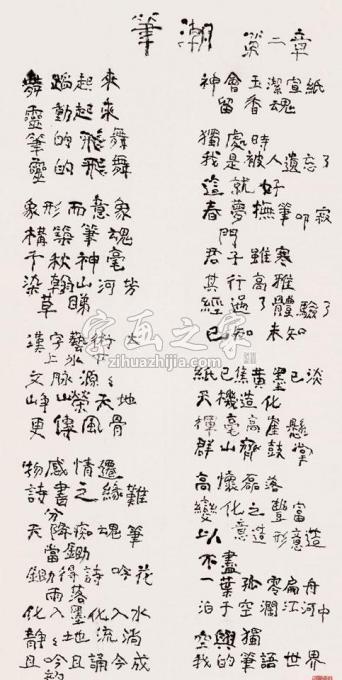 筆潮 第二章
舞蹈起來
靈動起來
筆的飛舞
靈的飛舞
象形而意象
構築筆魂
千秋神毫
染翰山河芳
草睇
漢字藝術太
上水
文脉源々
峥嵘天地
更傢風骨
物感情遷
詩畫之緣難
分
天降痴魂筆
當鋤
鋤得詩吟花
雨落
化入墨化入水
靜々地流淌
且吟且誦今成
韵
神會玉潔宣紙
留香魂
獨處時
我是被人遺忘了
這就好
春夢撫筆叩寂
門
君子雖寒
其行高雅
經過了體驗了
已知未知
紙已焦黄墨已淡
天機造化
揮毫高崖懸
群山齊鼓掌
高懷磊落
變化之豐富
上人意造形意造
不盡
一葉孤零扁舟
泊于空瀾江河中
空與獨
我的筆語世界
字画之家
zihuazhijia.com